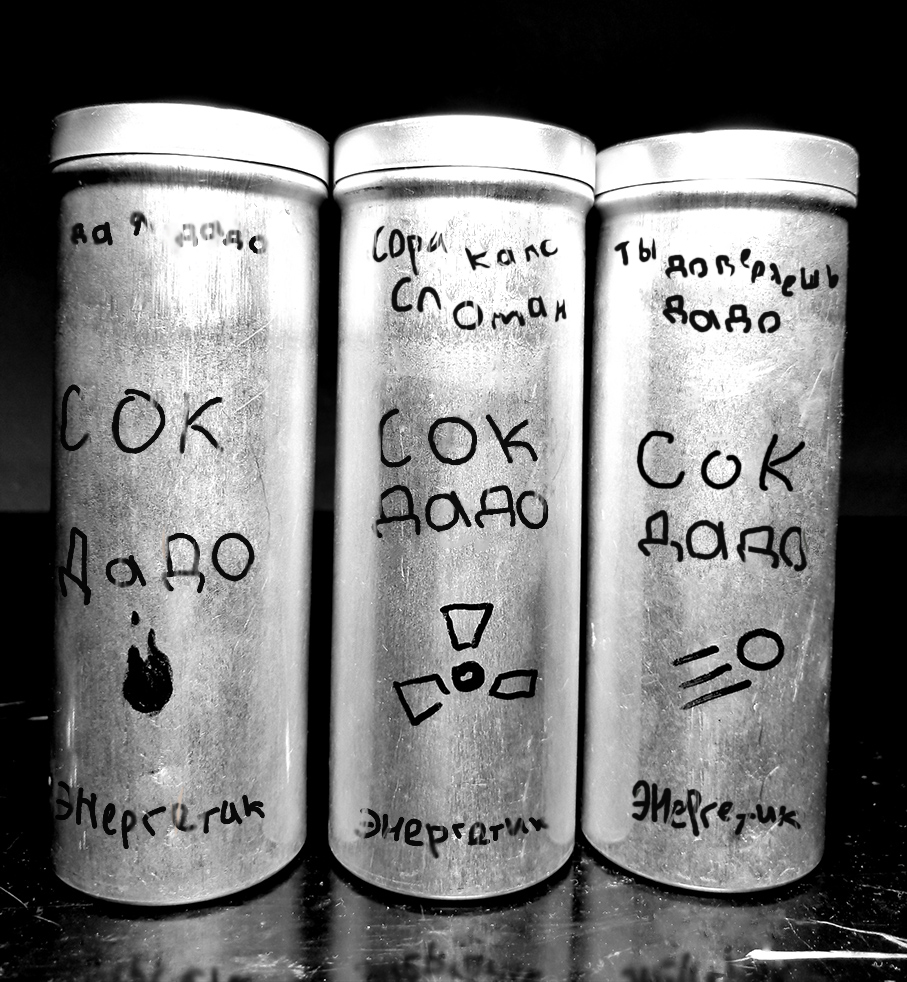 да я дадо
СОК
ДаДО
Энергетик
СОРа капс
Сп Отан
СОК
ДАДО
Энергетик
ТЫ доверяешь
дадо
СОК
ДАДО
Энергетик